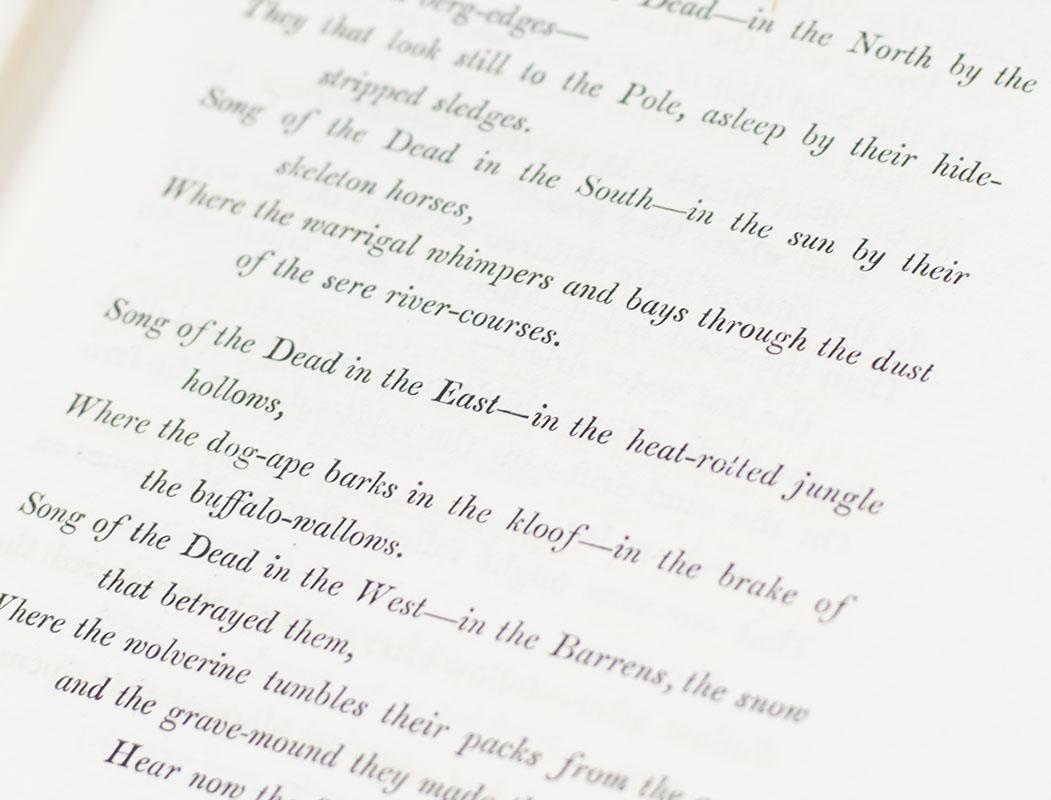 Dead—in the North by the
berg-edges—
They that look still to the Pole, asleep by their hide-
stripped sledges.
Song of the Dead in the South—in the sun by their
skeleton horses,
Where the warrigal whimpers and bays through the dust
of the sere river-courses.
Song of the Dead in the East—in the heat-rotted jungle
hollows,
Where the dog-ape barks in the kloof—in the brake of
the buffalo-wallows.
Song of the Dead in the West—in the Barrens, the snow
that betrayed them,
Where the wolverine tumbles their packs from the
and the grave-mound they made
Hear now the